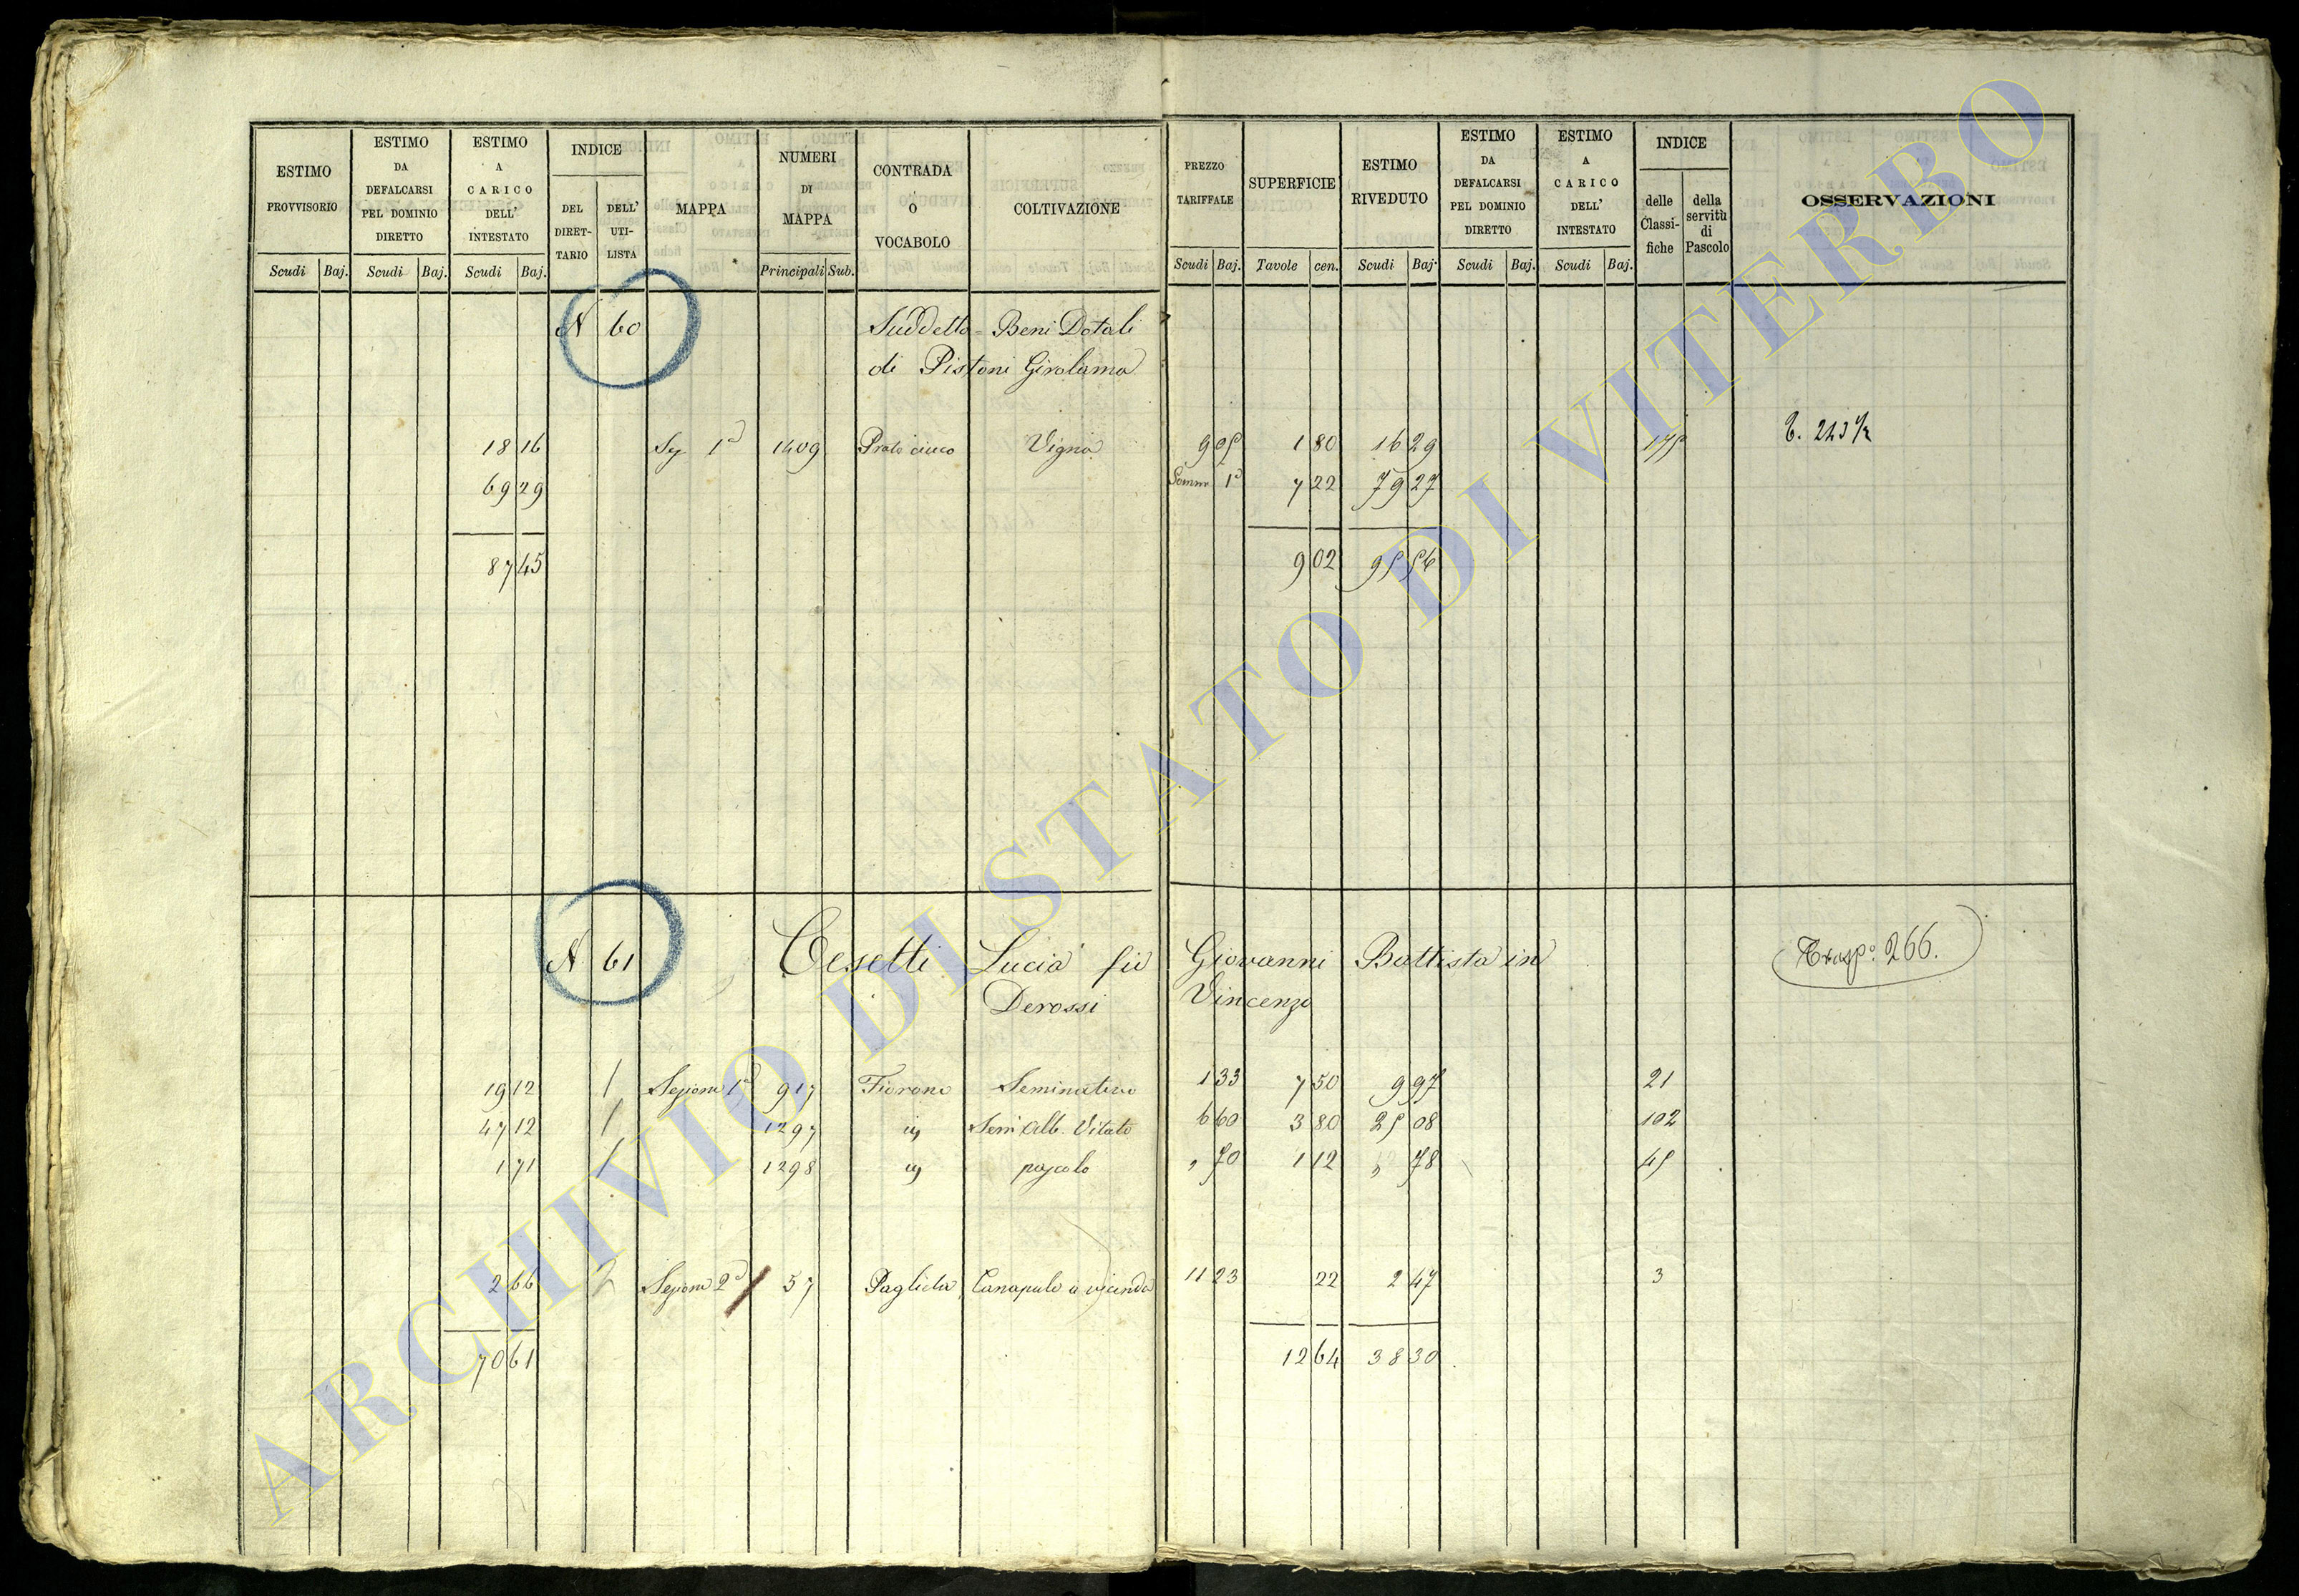 ESTIMO PROVVISORIO | ESTIMO DA DEFALCARSI PEL DOMINIO DIRETTO | ESTIMO A CARICO DELL' INTESTATO | INDICE DEL DIRETTARIO | DELL' UTILISTA | MAPPA | NUMERI DI MAPPA | CONTRADA O VOCABOLO | COLTIVAZIONE | PREZZO TARIFFALE | SUPERFICIE | ESTIMO RIVEDUTO | ESTIMO DA DEFALCARSI PEL DOMINIO DIRETTO | ESTIMO A CARICO DELL' INTESTATO | INDICE delle Classifiche | della servitù di Pascolo | OSSERVAZIONI
Scudi Baj. Scudi Baj. Scudi Baj. Principali Sub. Scudi Baj. Tavole cen. Scudi Baj. Scudi Baj. Scudi Baj.
N 60 Suddetto = Beni Dotali
di Pistoni Girolama
18 16 Sez 1ª 1409 Prato cieco Vigna 9 05 1 80 16 29 175
69 29 Somm 1ª 7 22 79 27
87 45 9 02 95 56
N 61 Cesetti Lucia fu Giovanni Battista in
Derossi Vincenzo
Trasp: 266.
19 12 / Sezione 1ª 917 Fiorano Seminativo 1 33 7 50 9 97 21
47 12 / 1297 Sem Alb. Vitato 6 60 3 80 25 08 102
1 71 / 1298 pascolo " 70 1 12 " 78 45
2 66 Sezione 2ª 57 Paglieta Canapule a vicenda 11 23 22 2 47 3
70 61 12 64 38 30
ARCHIVIO DI STATO DI VITERBO